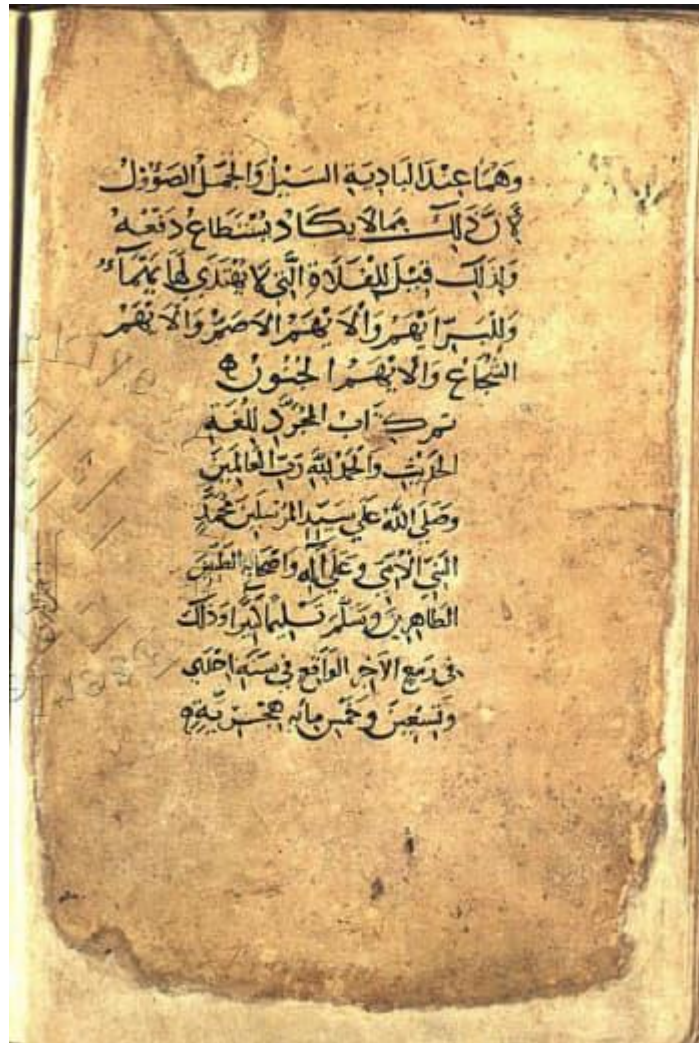 وَهُمَا عِنْدَ البَادِيَةِ السَيْلُ وَالجَمَلُ الصَؤُولُ
لِأَنَّ ذَلِكَ مِمَا لَا يَكَادُ يُسْتَطَاعُ دَفْعُهُ
وَلِذَلِكَ قِيْلَ لِلْفَلَاةِ الَّتِي لَا يُهْتَدَي لَهَا يَهْمَآءُ
وَلِلْبَرِّ اَيْهَمُ وَالْاَيْهَمُ الاَصَمُّ وَالْاَيْهَمُ
الشُجَاعُ وَالْايْهَمُ الجُنُونُ
تم كتاب المُجَرَّدِ لِلُغَةِ
الحَدِيْثِ وَالحَمْدُ لِلَّهِ رَبِّ الْعَالَمِيْنَ
وصَلَى اللهُ عَلَي سَيِّدِ المُرْسَلِيْنَ مُحَمَّدٍ
النَبِيِّ الْاُمِّيِّ وعَلَي آلِهِ وَاصْحَابِهِ الطَيِّبِيْنَ
الطَاهِرِيْنَ وسَلَّمَ تَسْلِيْمًا كَثِيْرًا وَذَلِكَ
فِي رَبِيعِ الآخِرِ الوَاقِعِ فِي سَنَةِ احْدَي
وَتِسْعِيْنَ وَخَمْسِ مِائَةٍ هِجْرِيَّةٍ